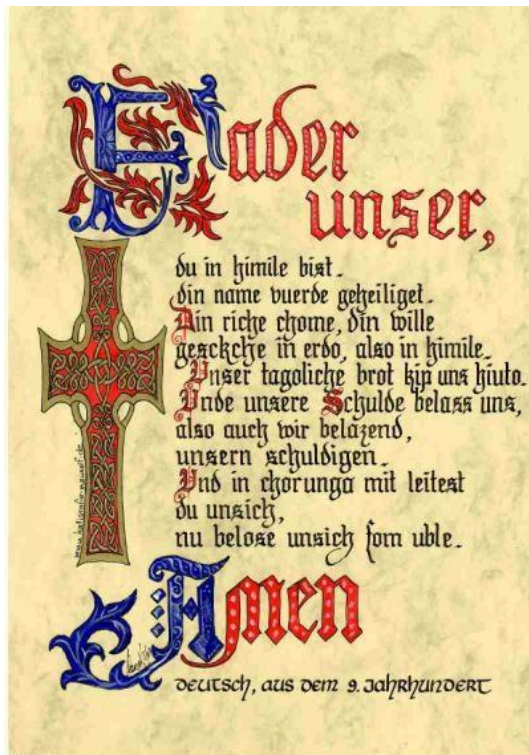 Fader
unser,
du in himile bist.
din name vuerde geheiliget.
Din riche chome, din wille
gesckche in erdo, also in himile.
Unser tagoliche brot kip uns hiuto.
Unde unsere Schulde belass uns,
also auch wir belazend,
unsern schuldigen.
Und in chorunga mit leitest
du unsich,
nu belose unsich fom uble.
Amen
deutsch, aus dem 9. Jahrhundert